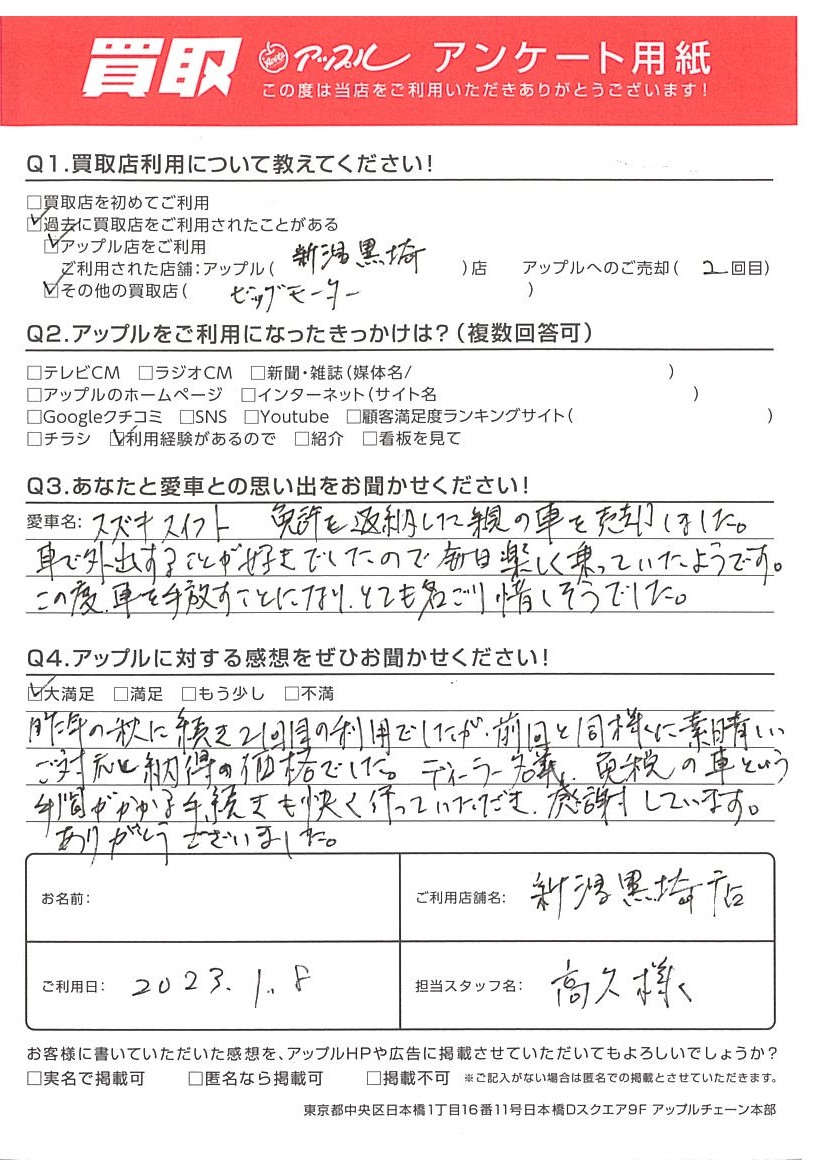 買取 アップル アンケート用紙
この度は当店をご利用いただきありがとうございます！
Q1.買取店利用について教えてください！
□買取店を初めてご利用
☑過去に買取店をご利用されたことがある
☑アップル店をご利用
ご利用された店舗：アップル（ 新潟黒埼 ）店 アップルへのご売却（ 2回目）
☑その他の買取店（ ビッグモーター ）
Q2.アップルをご利用になったきっかけは？（複数回答可）
□テレビCM □ラジオCM □新聞・雑誌（媒体名/ ）
□アップルのホームページ □インターネット（サイト名 ）
□Googleクチコミ □SNS □Youtube □顧客満足度ランキングサイト（ ）
□チラシ ☑利用経験があるので □紹介 □看板を見て
Q3.あなたと愛車との思い出をお聞かせください！
愛車名： スズキスイフト 免許を返納した親の車を売却しました。
車で外出することが好きでしたので毎日楽しく乗っていたようです。
この度、車を手放すことになり、とても名ごり惜しそうでした。
Q4.アップルに対する感想をぜひお聞かせください！
☑大満足 □満足 □もう少し □不満
昨年の秋に続き2回目の利用でしたが、前回と同様に素晴しい
ご対応と納得の価格でした。ディーラー名義、免税の車という
手間がかかる手続きも快く行っていただき、感謝しています。
ありがとうございました。
お名前： ご利用店舗名： 新潟黒埼店
ご利用日： 2023.1.8 担当スタッフ名： 高久様
お客様に書いていただいた感想を、アップルHPや広告に掲載させていただいてもよろしいでしょうか？
□実名で掲載可 □匿名なら掲載可 □掲載不可 ※ご記入がない場合は匿名での掲載とさせていただきます。
東京都中央区日本橋1丁目16番11号日本橋Dスクエア9F アップルチェーン本部